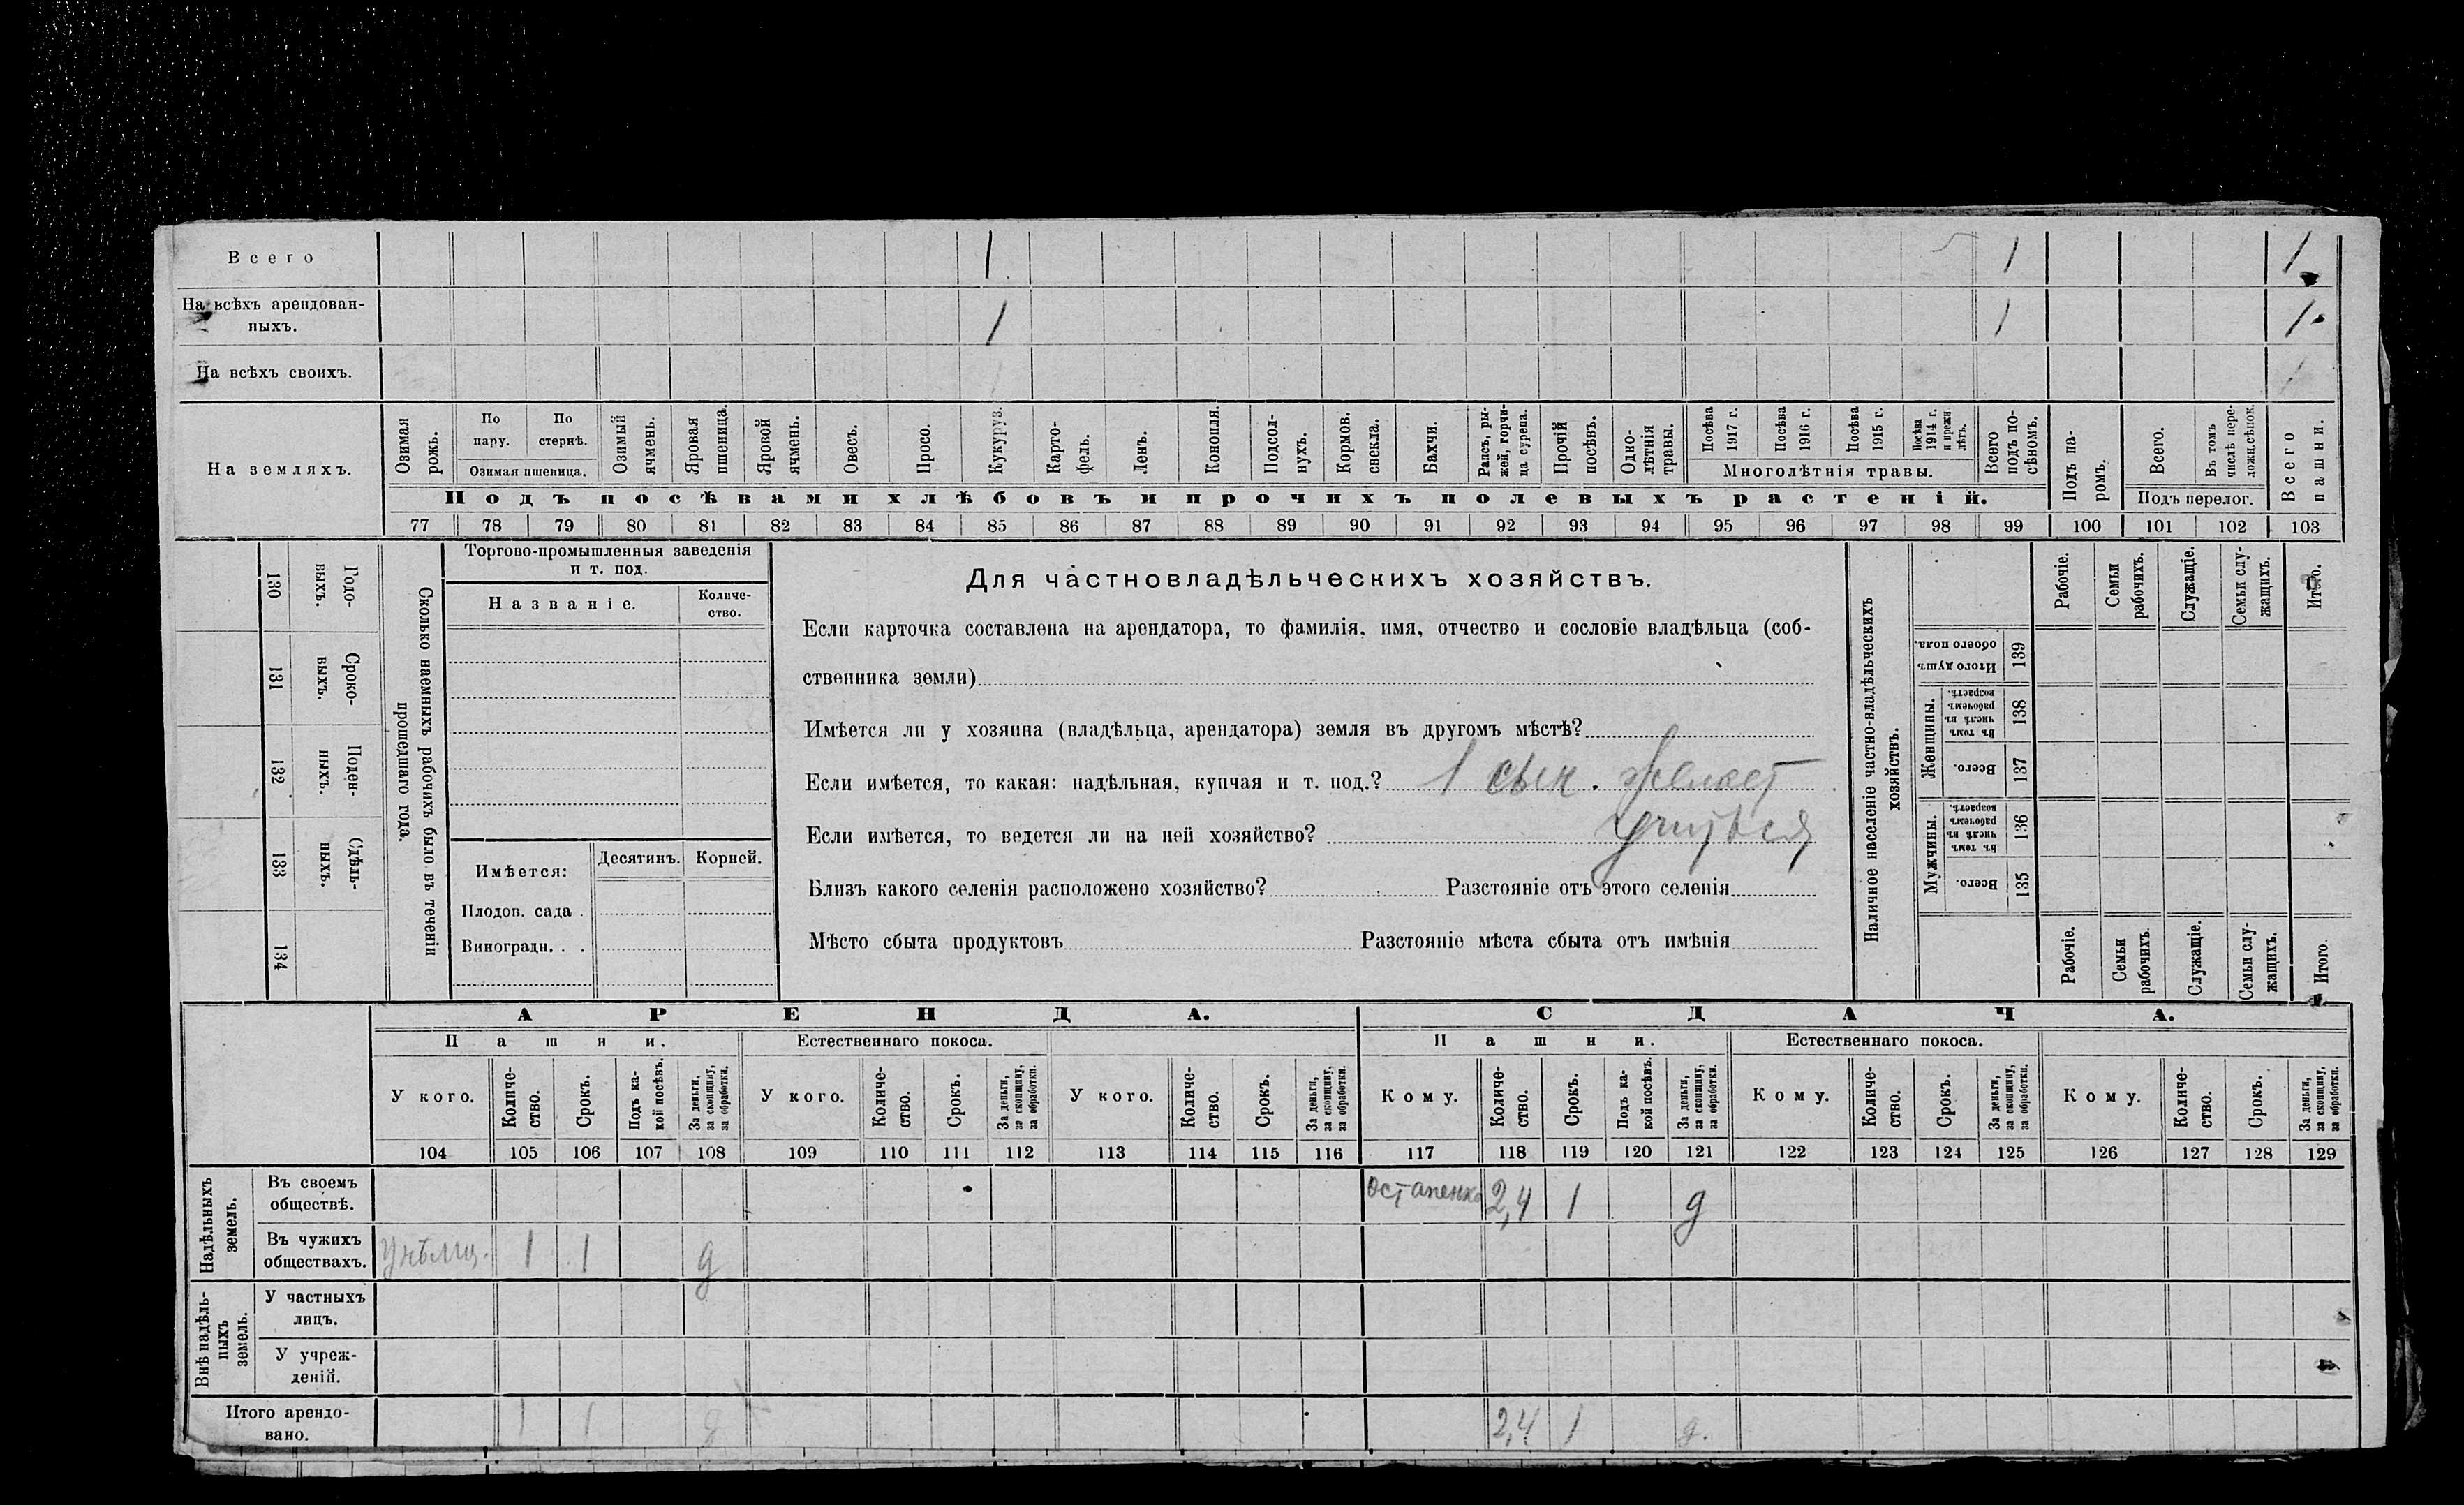 Всего 1 1 1
На всѣхъ арендован-
ныхъ. 1 1 1
На всѣхъ своихъ.
На земляхъ.
Озимая рожь.
По пару.
По стернѣ.
Озимая пшеница.
Озимый ячмень.
Яровая пшеница.
Яровой ячмень.
Овесъ.
Просо.
Кукуруз.
Карто-
фель.
Ленъ.
Конопля.
Подсол-
нухъ.
Кормов.
свекла.
Бахчи.
Рапсъ, ры-
жей, горчи-
ца сурепа.
Прочій
посѣвъ.
Одно-
лѣтнія
травы.
Посѣва
1917 г.
Посѣва
1916 г.
Посѣва
1915 г.
Посѣва
1914 г.
и прежн.
лѣтъ.
Многолѣтнія травы.
Всего
подъ по-
сѣвомъ.
Подъ па-
ромъ.
Всего.
Въ томъ
числѣ пере-
ложн.сѣнок.
Подъ перелог.
Всего
пашни.
Подъ посѣвами хлѣбовъ и прочихъ полевыхъ растеній.
77 78 79 80 81 82 83 84 85 86 87 88 89 90 91 92 93 94 95 96 97 98 99 100 101 102 103
130 Годо-
выхъ.
131 Сроко-
выхъ.
132 Поден-
ныхъ.
133 Сдѣль-
ныхъ.
134
Сколько наемныхъ рабочихъ было въ теченіи
прошедшаго года.
Торгово-промышленныя заведенія
и т. под.
Названіе.
Количе-
ство.
Имѣется:
Десятинъ.
Корней.
Плодов. сада .
Виноградн. . .
Для частновладѣльческихъ хозяйствъ.
Если карточка составлена на арендатора, то фамилія, имя, отчество и сословіе владѣльца (соб-
ственника земли)
Имѣется ли у хозяина (владѣльца, арендатора) земля въ другомъ мѣстѣ?
Если имѣется, то какая: надѣльная, купчая и т. под.? 1 сын. желает
Если имѣется, то ведется ли на ней хозяйство? учиться
Близъ какого селенія расположено хозяйство? Разстояніе отъ этого селенія
Мѣсто сбыта продуктовъ Разстояніе мѣста сбыта отъ имѣнія
Наличное населеніе частно-владѣльческихъ
хозяйствъ.
Рабочіе.
Семьи
рабочихъ.
Служащіе.
Семьи слу-
жащихъ.
Итого.
Итого душъ
обоего пола.
139
Женщины.
Въ томъ
числѣ въ
рабочемъ
возрастѣ.
138
Всего.
137
Мужчины.
Въ томъ
числѣ въ
рабочемъ
возрастѣ.
136
Всего.
135
Рабочіе.
Семьи
рабочихъ.
Служащіе.
Семьи слу-
жащихъ.
Итого.
АРЕНДА. СДАЧА.
Пашни. Естественнаго покоса. Пашни. Естественнаго покоса.
У кого.
Количе-
ство.
Срокъ.
Подъ ка-
кой посѣвъ.
За деньги,
за скопщину,
за обработки.
У кого.
Количе-
ство.
Срокъ.
За деньги,
за скопщину,
за обработки.
У кого.
Количе-
ство.
Срокъ.
За деньги,
за скопщину,
за обработки.
Кому.
Количе-
ство.
Срокъ.
Подъ ка-
кой посѣвъ.
За деньги,
за скопщину,
за обработки.
Кому.
Количе-
ство.
Срокъ.
За деньги,
за скопщину,
за обработки.
Кому.
Количе-
ство.
Срокъ.
За деньги,
за скопщину,
за обработки.
104 105 106 107 108 109 110 111 112 113 114 115 116 117 118 119 120 121 122 123 124 125 126 127 128 129
Надѣльныхъ
земель.
Въ своемъ
обществѣ. Остапенко 2,4 1 д
Въ чужихъ
обществахъ. 1 1 д
Внѣ надѣль-
ныхъ
земель.
У частныхъ
лицъ.
У учреж-
деній.
Итого арендо-
вано. 1 1 д 2,4 1 д.